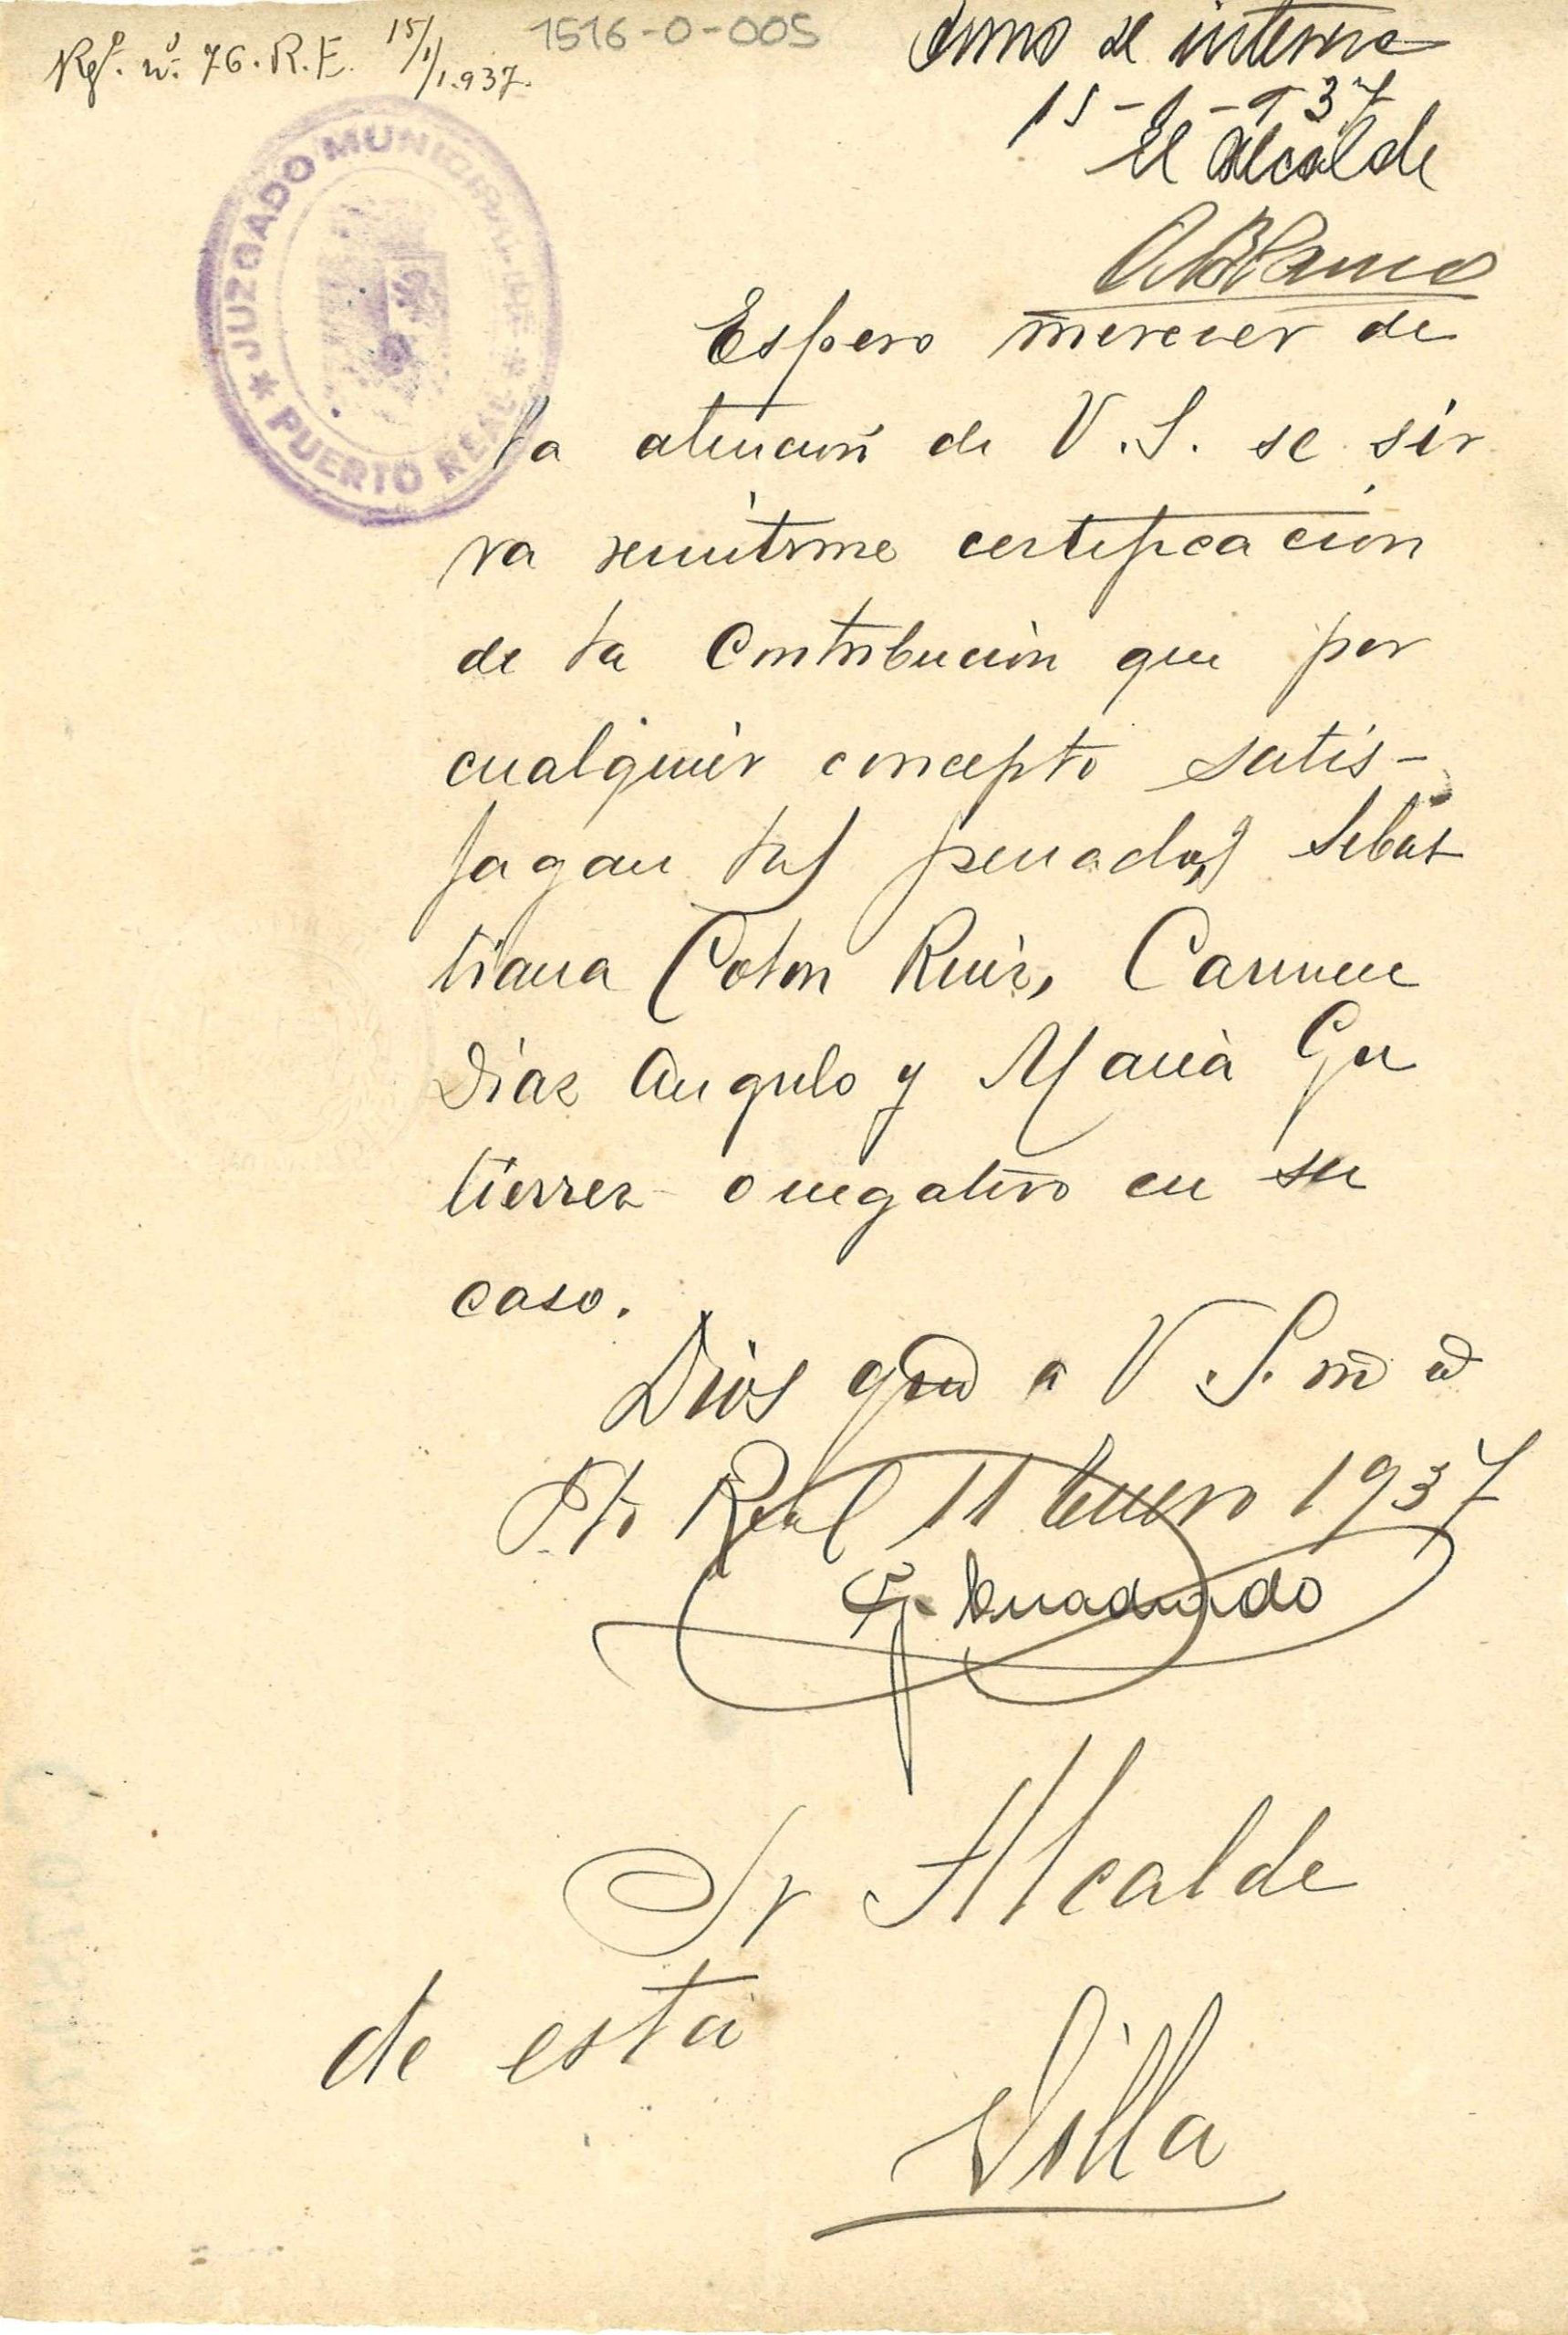 Rgº. nº. 76. R.E. 15/1/1.937.
1516-0-005
como se interesa
15-1-937
El Alcalde
JUZGADO MUNICIPAL DE
PUERTO REAL
Espero merecer de
la atención de V.S. se sir
va remitirme certificación
de la Contribución que por
cualquier concepto satis-
fagan las penadas Sebas
tiana Colon Ruiz, Carmen
Diaz Angulo y Maria Gu
tierrez o negativo en su
caso.
Dios gue a V.S. m a
Pto Real 11 Enero 1937
Cuadrado
Sr Alcalde
de esta
Villa